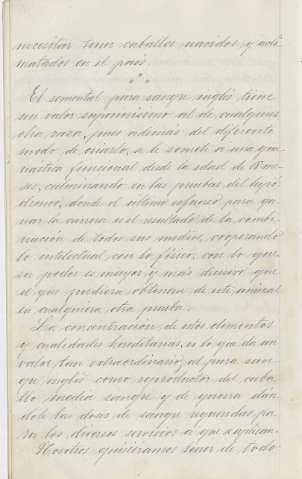 necesitar tener caballos nacidos y acli-
matados en el país.
El semental pura sangre inglés tiene
un valor superiorísimo al de cualquier
otra raza, pues además del diferente
modo de criarlo, se le somete a una gim-
nástica funcional desde la edad de 18 me-
ses, culminando en las pruebas del hipó-
dromo, donde el último esfuerzo para ga-
nar la carrera es el resultado de la combi-
nación de todos sus medios, cooperando
lo intelectual con lo físico, con lo que
su poder es mayor y más decisivo que
el que pudiera obtener de este animal
en cualquiera otra prueba.
La concentración de estos elementos
y cualidades hereditarias, es lo que da un
valor tan extraordinario, al pura san-
gre inglés como reproductor del caba-
llo media sangre y de guerra dán-
dole las dosis de sangre requeridas pa-
ra los diversos servicios a que se aplican.
Nosotros quisiéramos tener de todo